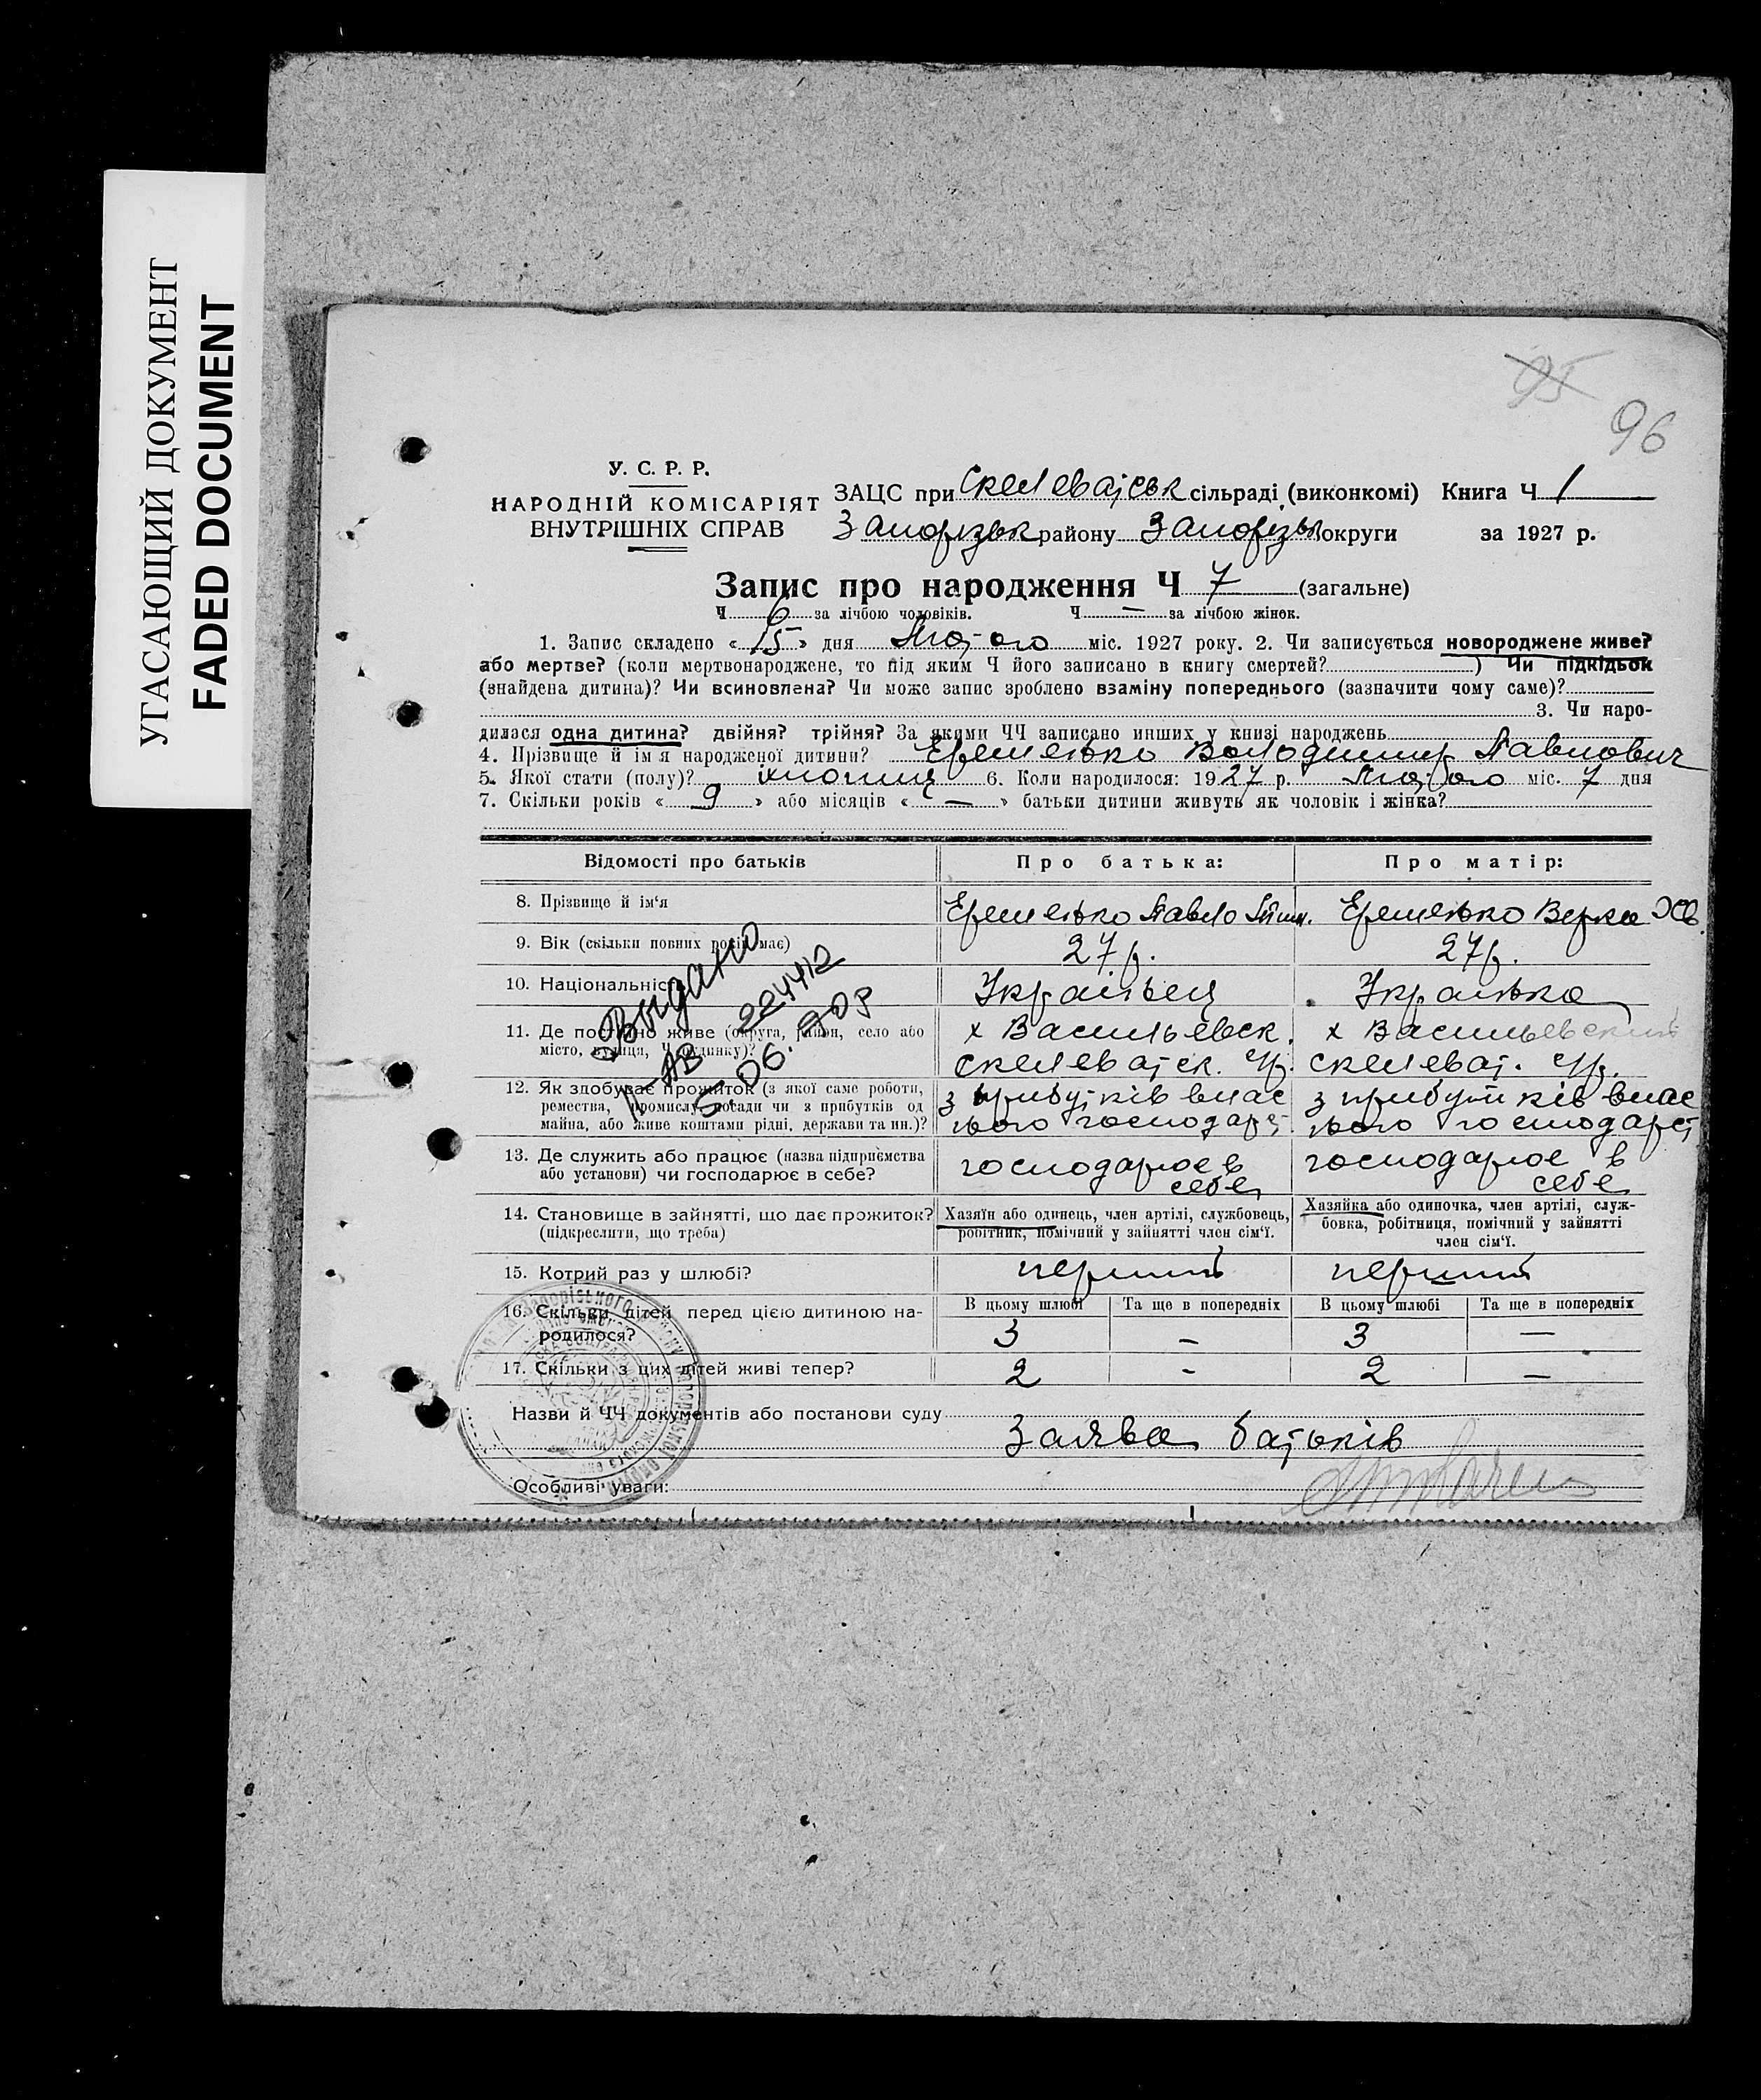 УГАСАЮЩИЙ ДОКУМЕНТ
FADED DOCUMENT
95
96
У. С. Р. Р.
НАРОДНІЙ КОМІСАРІЯТ
ВНУТРІШНІХ СПРАВ
ЗАЦС при Скелеватськ сільраді (виконкомі) Книга Ч 1
Запорізьк району Запорізьк округи за 1927 р.
Запис про народження Ч 7 (загальне)
Ч 6 за лічбою чоловіків. Ч — за лічбою жінок.
1. Запис складено « 15 » дня Лютого міс. 1927 року. 2. Чи записується новороджене живе?
або мертве? (коли мертвонароджене, то під яким Ч його записано в книгу смертей? ) Чи підкідьок
(знайдена дитина)? Чи всиновлена? Чи може запис зроблено взаміну попереднього (зазначити чому саме)?
3. Чи наро-
дилася одна дитина? двійня? трійня? За якими ЧЧ записано инших у книзі народжень
4. Прізвище й ім'я народженої дитини? Еременко Володимир Павлович
5. Якої стати (полу)? хлопиць 6. Коли народилося: 1927 р. Лютого міс. 7 дня
7. Скільки років « 9 » або місяців « — » батьки дитини живуть як чоловік і жінка?
Відомості про батьків Про батька: Про матір:
8. Прізвище й ім'я Еременко Павло Еременко Верка
9. Вік (скільки повних років має) 27 р. 27 р.
10. Національність Українець Українка
11. Де постійно живе (округа, район, село або місто, вулиця, Ч будинку)? х Васильевск. Скелеватск. х Васильевский Скелеват.
12. Як здобуває прожиток (з якої саме роботи, ремества, промислу, посади чи з прибутків од майна, або живе коштами рідні, держави та ин.)? з прибутків влас ного господарст з прибутків влас ного господарст
13. Де служить або працює (назва підприємства або установи) чи господарює в себе? господарює в себе господарює в себе
14. Становище в зайнятті, що дає прожиток? (підкреслити, що треба) Хазяїн або одинець, член артілі, службовець, робітник, помічний у зайнятті член сім'ї. Хазяйка або одиночка, член артілі, служ- бовка, робітниця, помічний у зайнятті член сім'ї.
15. Котрий раз у шлюбі? перший перший
16. Скільки дітей перед цією дитиною на- родилося? В цьому шлюбі Та ще в попередніх В цьому шлюбі Та ще в попередніх
3 – 3 —
17. Скільки з цих дітей живі тепер? 2 - 2 —
Видано
I-АВ 224412
5.06.
Назви й ЧЧ документів або постанови суду
Заява батьків
Особливі уваги: